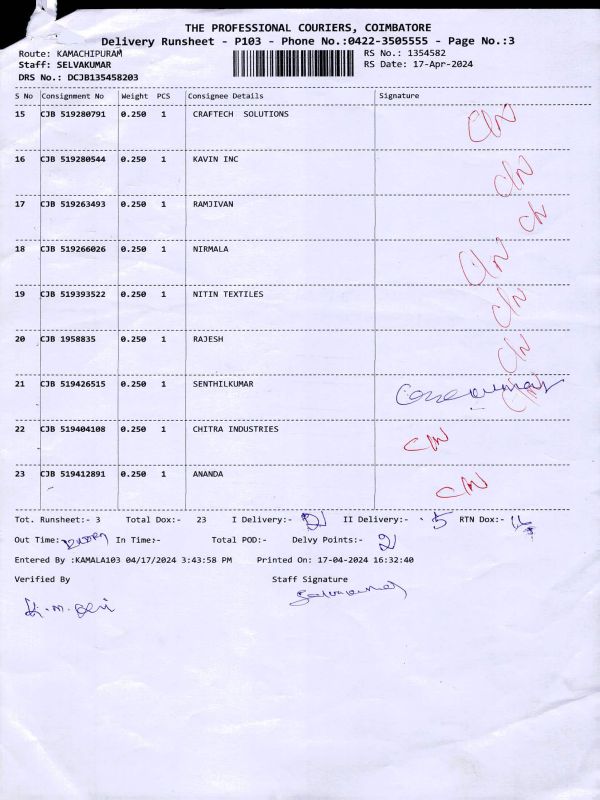 THE PROFESSIONAL COURIERS, COIMBATORE
Delivery Runsheet - P103 - Phone No.:0422-3505555 - Page No.:3
Route: KAMACHIPURAM RS No.: 1354582
Staff: SELVAKUMAR RS Date: 17-Apr-2024
DRS No.: DCJB135458203
S No Consignment No Weight PCS Consignee Details Signature
15 CJB 519280791 0.250 1 CRAFTECH SOLUTIONS C/N
16 CJB 519280544 0.250 1 KAVIN INC C/N
17 CJB 519263493 0.250 1 RAMJIVAN C/N
18 CJB 519266026 0.250 1 NIRMALA C/N
19 CJB 519393522 0.250 1 NITIN TEXTILES C/N
20 CJB 1958835 0.250 1 RAJESH C/N
21 CJB 519426515 0.250 1 SENTHILKUMAR C/N
22 CJB 519404108 0.250 1 CHITRA INDUSTRIES C/N
23 CJB 519412891 0.250 1 ANANDA C/N
Tot. Runsheet:- 3 Total Dox:- 23 I Delivery:- II Delivery:- 5 RTN Dox:-
Out Time: In Time:- Total POD:- Delvy Points:-
Entered By :KAMALA103 04/17/2024 3:43:58 PM Printed On: 17-04-2024 16:32:40
Verified By Staff Signature